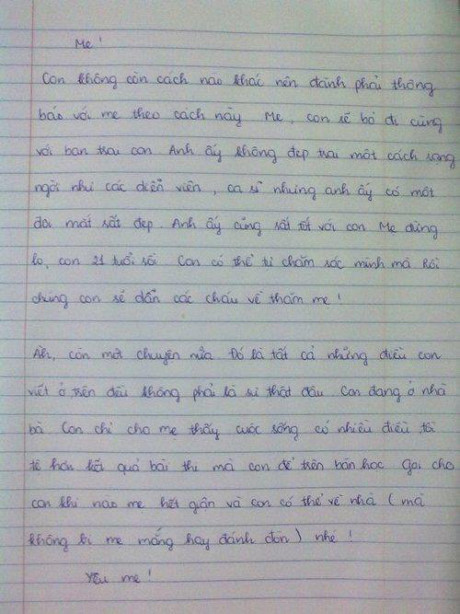 Mẹ!
Con không còn cách nào khác nên đành phải thông
báo với mẹ theo cách này. Mẹ, con sẽ bỏ đi cùng
với bạn trai con. Anh ấy không đẹp trai một cách sáng
ngời như các diễn viên, ca sĩ nhưng anh ấy có một
đôi mắt rất đẹp. Anh ấy cũng rất tốt với con. Mẹ đừng
lo, con 21 tuổi rồi. Con có thể tự chăm sóc mình mà. Rồi
chúng con sẽ dẫn các cháu về thăm mẹ!
Àh, còn một chuyện nữa. Đó là tất cả những điều con
viết ở trên đều không phải là sự thật đâu. Con đang ở nhà
bà. Con chỉ cho mẹ thấy cuộc sống có nhiều điều tồi
tệ hơn kết quả bài thi mà con để trên bàn học. Gọi cho
con khi nào mẹ hết giận và con có thể về nhà (mà
không bị mẹ mắng hay đánh đòn) nhé!
Yêu mẹ!